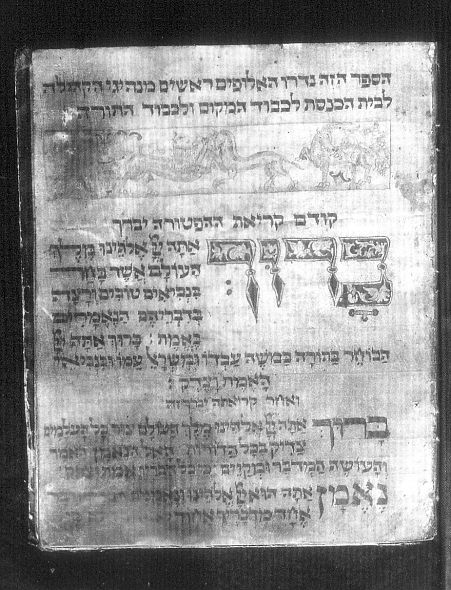 הספר הזה נדרו האלופים ראשים מנהיגי הקהלה
לבית הכנסת לכבוד המקום ולכבוד התורה
קודם קריאת ההפטורה יברך
בָּרוּךְ
אַתָּה יְיָ אֱלֹהֵינוּ מֶלֶךְ
הָעוֹלָם אֲשֶׁר בָּחַר
בִּנְבִיאִים טוֹבִים וְרָצָה
בְדִבְרֵיהֶם הַנֶּאֱמָרִים
בֶּאֱמֶת בָּרוּךְ אַתָּה יְיָ
הַבּוֹחֵר בַּתּוֹרָה בְּמֹשֶׁה עַבְדּוֹ וּבְיִשְׂרָאֵל עַמּוֹ וּבִנְבִיאֵי
הָאֱמֶת וָצֶדֶק
ואחר קריאתה
בָּרוּךְ אַתָּה יְיָ אֱלֹהֵינוּ מֶלֶךְ הָעוֹלָם צוּר כָּל הָעוֹלָמִים
צַדִּיק בְּכָל הַדּוֹרוֹת הָאֵל הַנֶּאֱמָן הָאוֹמֵר
וְהָעוֹשֶׂה הַמְדַבֵּר וּמְקַיֵּם
נֶאֱמָן אַתָּה הוּא יְיָ אֱלֹהֵינוּ וְנֶאֱמָנִים